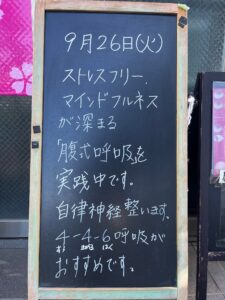 9月26日(火)
ストレスフリー.
マインドフルネス
が深まる
「腹式呼吸」を
実践中です。
自律神経整います。
4-4-6呼吸が
おすすめです。